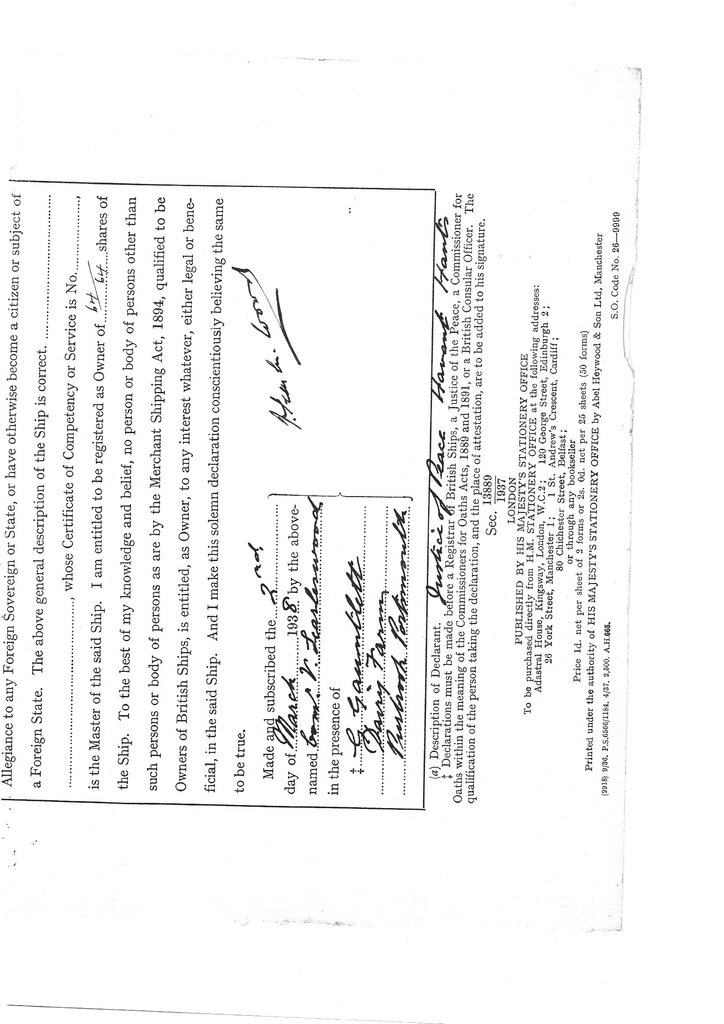 Allegiance to any Foreign Sovereign or State, or have otherwise become a citizen or subject of
a Foreign State. The above general description of the Ship is correct. ....................
...................., whose Certificate of Competency or Service is No...............,
is the Master of the said Ship. I am entitled to be registered as Owner of 64/64 shares of
the Ship. To the best of my knowledge and belief, no person or body of persons other than
such persons or body of persons as are by the Merchant Shipping Act, 1894, qualified to be
Owners of British Ships, is entitled, as Owner, to any interest whatever, either legal or bene-
ficial, in the said Ship. And I make this solemn declaration conscientiously believing the same
to be true.
Made and subscribed the 2nd
day of March 1938 by the above-
named
in the presence of
‡ Gauntlett
Dairy Farm
Purbrook Portsmouth
(a) Description of Declarant. Justice of Peace Havant Hants
‡ Declarations must be made before a Registrar of British Ships, a Justice of the Peace, a Commissioner for
Oaths within the meaning of the Commissioners for Oaths Acts, 1889 and 1891, or a British Consular Officer. The
qualification of the person taking the declaration, and the place of attestation, are to be added to his signature.
Sec. 13889/1937
LONDON
PUBLISHED BY HIS MAJESTY'S STATIONERY OFFICE
To be purchased directly from H.M. STATIONERY OFFICE at the following addresses:
Adastral House, Kingsway, London, W.C.2; 120 George Street, Edinburgh 2;
26 York Street, Manchester 1; 1 St. Andrew's Crescent, Cardiff;
80 Chichester Street, Belfast;
or through any bookseller
Price 1d. net per sheet of 2 forms or 2s. 6d. net per 25 sheets (50 forms)
Printed under the authority of HIS MAJESTY'S STATIONERY OFFICE by Abel Heywood & Son Ltd, Manchester
(2918) 9/36. P.S.6566/1184. 4/37. 2,500. A.H.665.
S.O. Code No. 26—9999